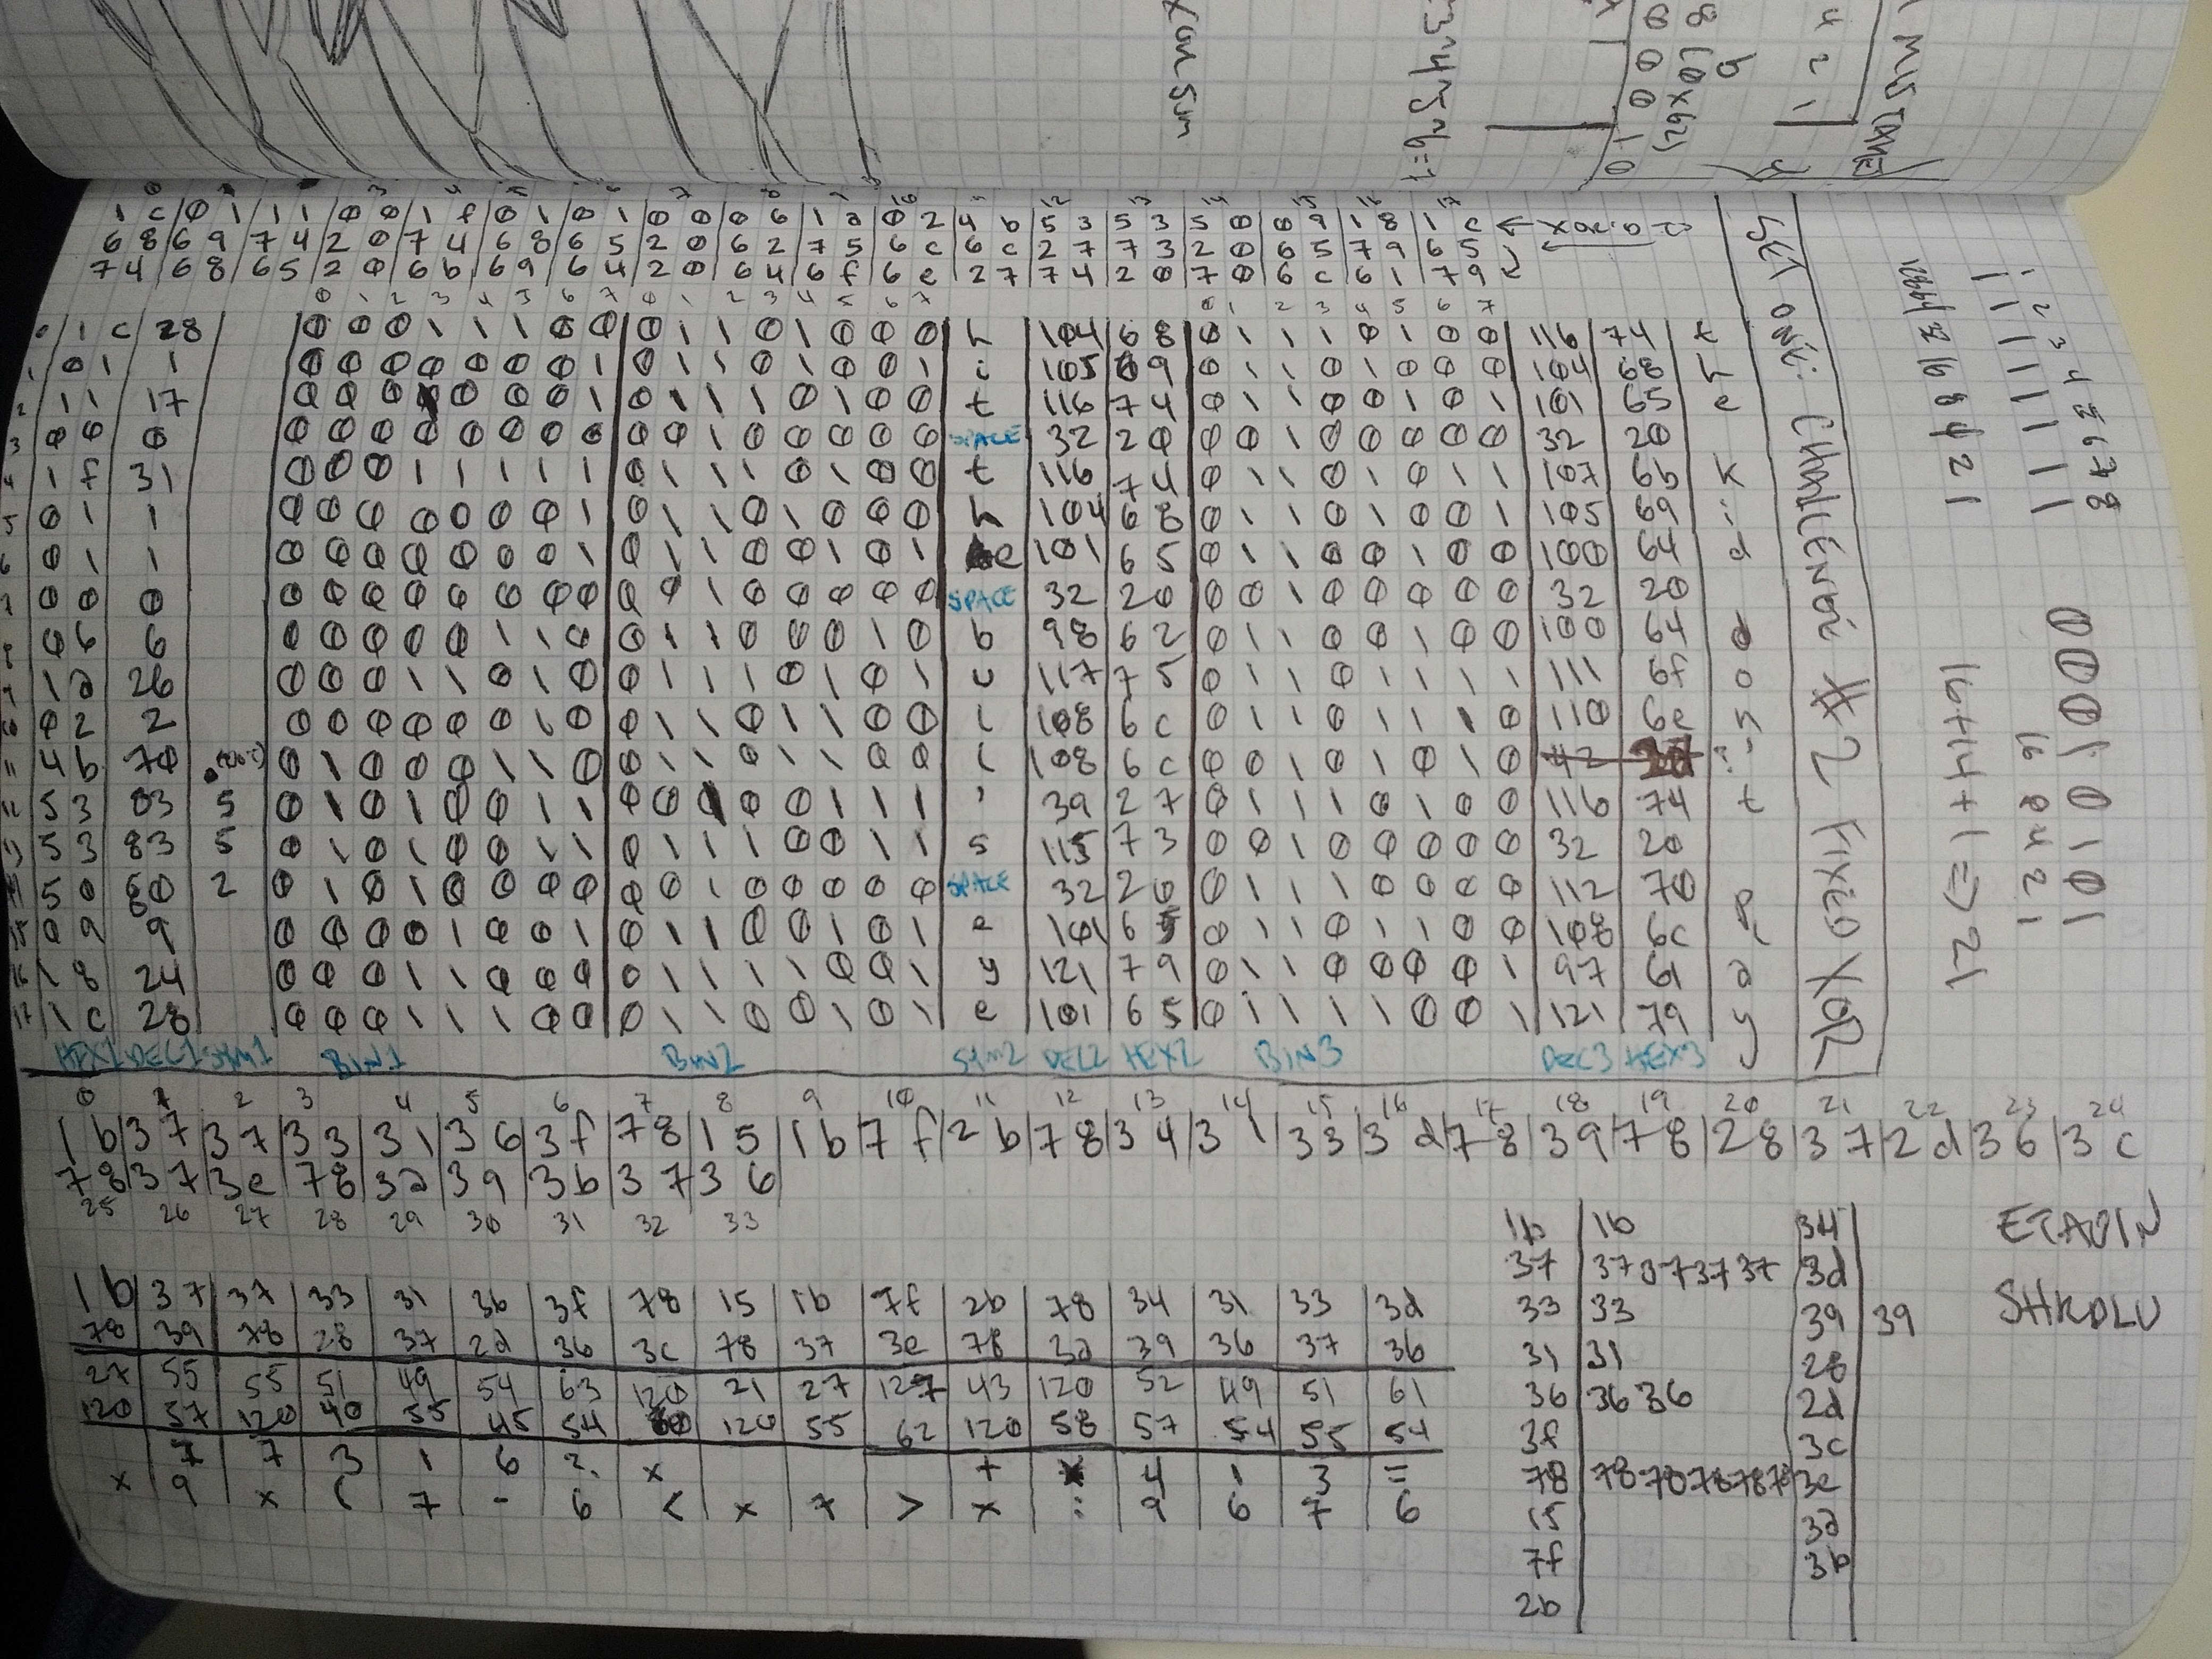 0 1 3 4 5 6 7 8 9 10 11 12 13 14 15 16 17
1 c|0 1|1 1|0 0|1 f|0 1|0 1|0 0|0 6|1 a|0 2|4 b|5 3|5 3|5 0|0 9|1 8|1 c ←
6 8|6 9|7 4|2 0|7 4|6 8|6 5|2 0|6 2|7 5|6 c|6 c|2 7|7 3|2 0|6 5|7 9|6 5
7 4|6 8|6 5|2 0|6 b|6 9|6 4|2 0|6 4|6 f|6 e|2 7|7 4|2 0|7 0|6 c|6 1|7 9
0 1 2 3 4 5 6 7 0 1 2 3 4 5 6 7 0 1 2 3 4 5 6 7
0 1 c 28 0 0 0 1 1 1 0 0 0 1 1 0 1 0 0 0 h 104 68 0 1 1 1 0 1 0 0 116 74 t
1 0 1 1 0 0 0 0 0 0 0 1 0 1 1 0 1 0 0 1 i 105 69 0 1 1 0 1 0 0 0 104 68 h
2 1 1 17 0 0 0 1 0 0 0 1 0 1 1 1 0 1 0 0 t 116 74 0 1 1 0 0 1 0 1 101 65 e
3 0 0 0 0 0 0 0 0 0 0 0 0 0 1 0 0 0 0 0 SPACE 32 20 0 0 1 0 0 0 0 0 32 20
4 1 f 31 0 0 0 1 1 1 1 1 0 1 1 1 0 1 0 0 t 116 74 0 1 1 0 1 0 1 1 107 6b k
5 0 1 1 0 0 0 0 0 0 0 1 0 1 1 0 1 0 0 0 h 104 68 0 1 1 0 1 0 0 1 105 69 i
6 0 1 1 0 0 0 0 0 0 0 1 0 1 1 0 0 1 0 1 e 101 65 0 1 1 0 0 1 0 0 100 64 d
7 0 0 0 0 0 0 0 0 0 0 0 0 0 1 0 0 0 0 0 SPACE 32 20 0 0 1 0 0 0 0 0 32 20
8 0 6 6 0 0 0 0 0 1 1 0 0 1 1 0 0 0 1 0 b 98 62 0 1 1 0 0 1 0 0 100 64 d
9 1 a 26 0 0 0 1 1 0 1 0 0 1 1 1 0 1 0 1 u 117 75 0 1 1 0 1 1 1 1 111 6f o
10 0 2 2 0 0 0 0 0 0 1 0 0 1 1 0 1 1 0 0 l 108 6c 0 1 1 0 1 1 1 0 110 6e n
11 4 b 70 0 1 0 0 0 1 1 0 0 1 1 0 1 1 0 0 l 108 6c 0 0 1 0 1 0 1 0 42
12 5 3 83 5 0 1 0 1 0 0 1 1 0 0 1 0 0 1 1 1 ' 39 27 0 1 1 1 0 1 0 0 116 74 t
13 5 3 83 5 0 1 0 1 0 0 1 1 0 1 1 1 0 0 1 1 s 115 73 0 0 1 0 0 0 0 0 32 20
14 5 0 80 2 0 1 0 1 0 0 0 0 0 0 1 0 0 0 0 0 SPACE 32 20 0 1 1 1 0 0 0 0 112 70 p
15 0 9 9 0 0 0 0 1 0 0 1 0 1 1 0 0 1 0 1 e 101 65 0 1 1 0 1 1 0 0 108 6c l
16 1 8 24 0 0 0 1 1 0 0 0 0 1 1 1 1 0 0 1 y 121 79 0 1 1 0 0 0 0 1 97 61 a
17 1 c 28 0 0 0 1 1 1 0 0 0 1 1 0 0 1 0 1 e 101 65 0 1 1 1 1 0 0 1 121 79 y
HEX1 DEC1 SYM1 BIN1 BIN2 SYM2 DEC2 HEX2 BIN3 DEC3 HEX3
0 1 2 3 4 5 6 7 8 9 10 11 12 13 14 15 16 17 18 19 20 21 22 23 24
1b|37|37|33|31|36|3f|78|15|1b|7f|2b|78|34|31|33|3d|78|39|78|28|37|2d|36|3c
78|37|3e|78|3a|39|3b|37|36
25 26 27 28 29 30 31 32 33
1b 37 37 33 31 36 3f 78 15 1b 7f 2b 78 34 31 33 3d
78 39 78 28 37 2d 36 3c 78 37 3e 78 3a 39 36 37 36
27 55 55 51 49 54 63 120 21 27 127 43 120 52 49 51 61
120 57 120 40 55 45 54 60 120 55 62 120 58 57 54 55 54
7 7 3 1 6 ? x + x 4 1 3 =
x 9 x ( 7 - 6 < x 7 > x : 9 6 7 6
1b 1b 34
37 37 37 37 37 3d
33 33 39 39
31 31 28
36 36 36 2d
3f 3c
78 78 78 78 78 78 3e
15 3a
7f 3b
2b
ETAOIN
SHRDLU
XOR FIXED 2 # CHALLENGE:
12 => 1+1+4+64
1 2 4 8 16
1 0 1 0 1 0 0 0
1 1 1 1 1 1 1 1
8 7 6 5 4 3 2 1